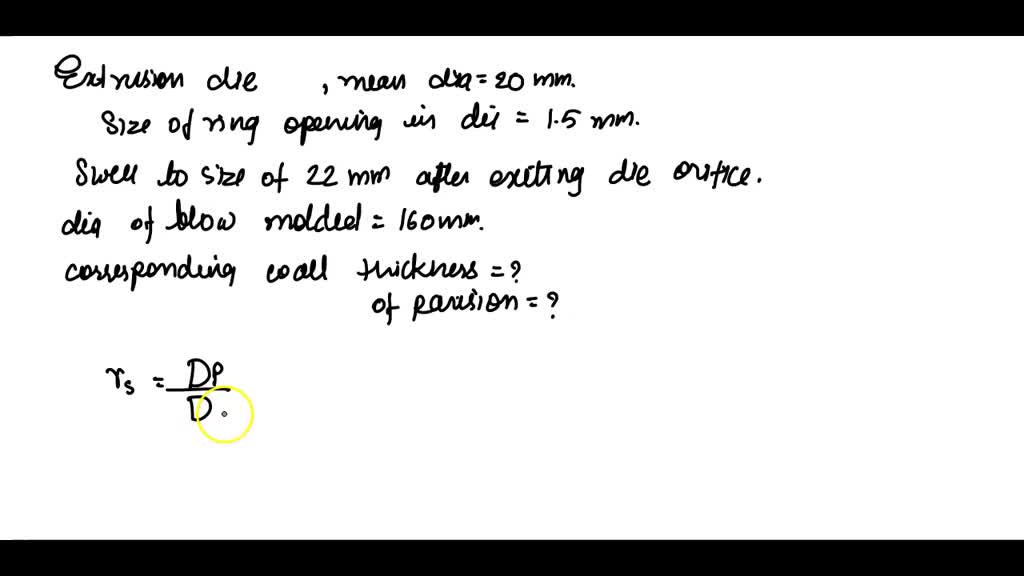 Extrusion die , mean dia = 20 mm.
Size of ring opening in die = 1.5 mm.
Swell to size of 22 mm after exiting die orifice.
dia of blow molded = 160mm.
corresponding wall thickness = ?
of parision = ?
rs = DP
D